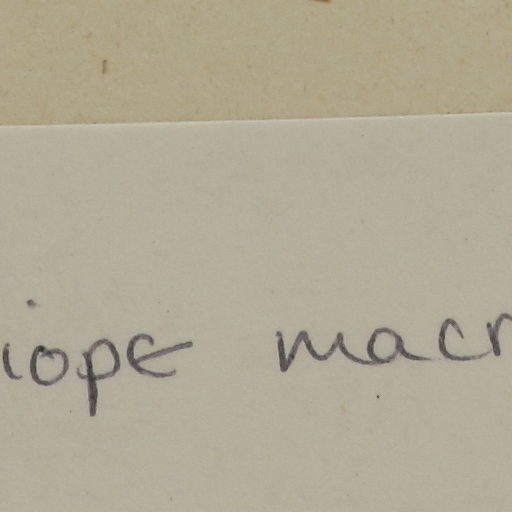 iope macr